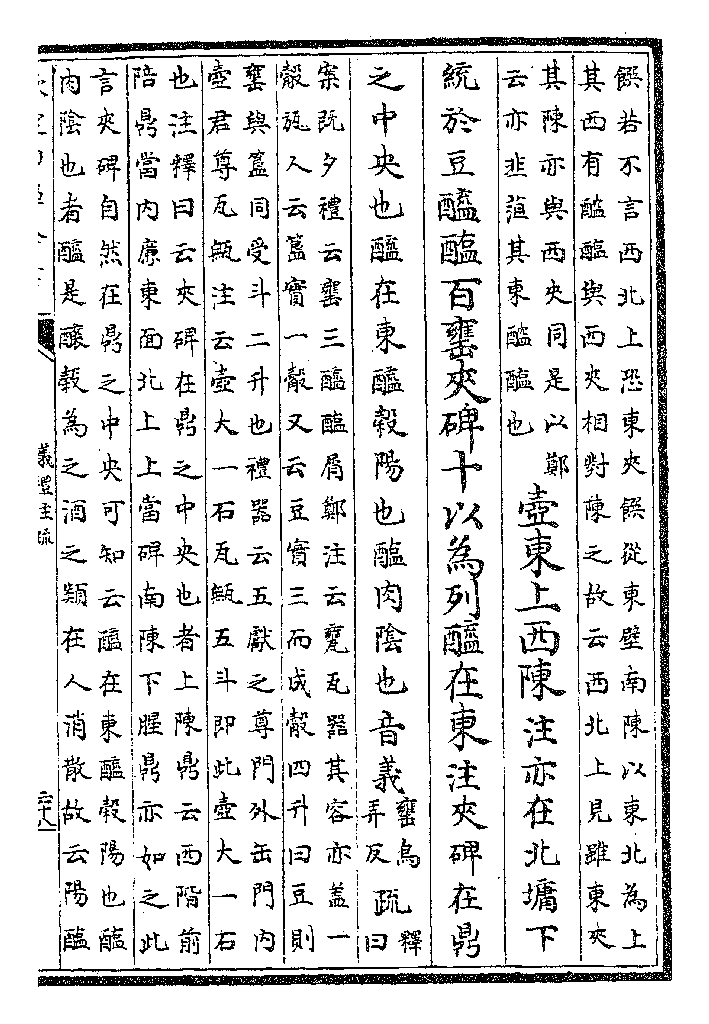 饌若不言西北上恐東夾饌從東壁南陳以東北為上
其西有醯醢與西夾相對陳之故云西北上見雖東夾
其陳亦與西夾同是以鄭
云亦韭菹其東醯醢也
壺東上西陳注亦在北墉下
統於豆醯醢百罋夾碑十以為列醯在東注夾碑在鼎
之中央也醯在東醯穀陽也醢肉陰也音義罋烏弄反疏釋曰
案既夕禮云罋三醯醢屑鄭注云甕瓦器其容亦蓋一
觳旊人云簋實一觳又云豆實三而成觳四升曰豆則
罋與簋同受斗二升也禮器云五獻之尊門外缶門內
壺君尊瓦甒注云壺大一石瓦甒五斗即此壺大一石
也注釋曰云夾碑在鼎之中央也者上陳鼎云西階前
陪鼎當內廉東面北上上當碑南陳下腥鼎亦如之此
言夾碑自然在鼎之中央可知云醯在東醯穀陽也醢
肉陰也者醯是釀穀為之酒之類在人消散故云陽醢
儀禮注疏